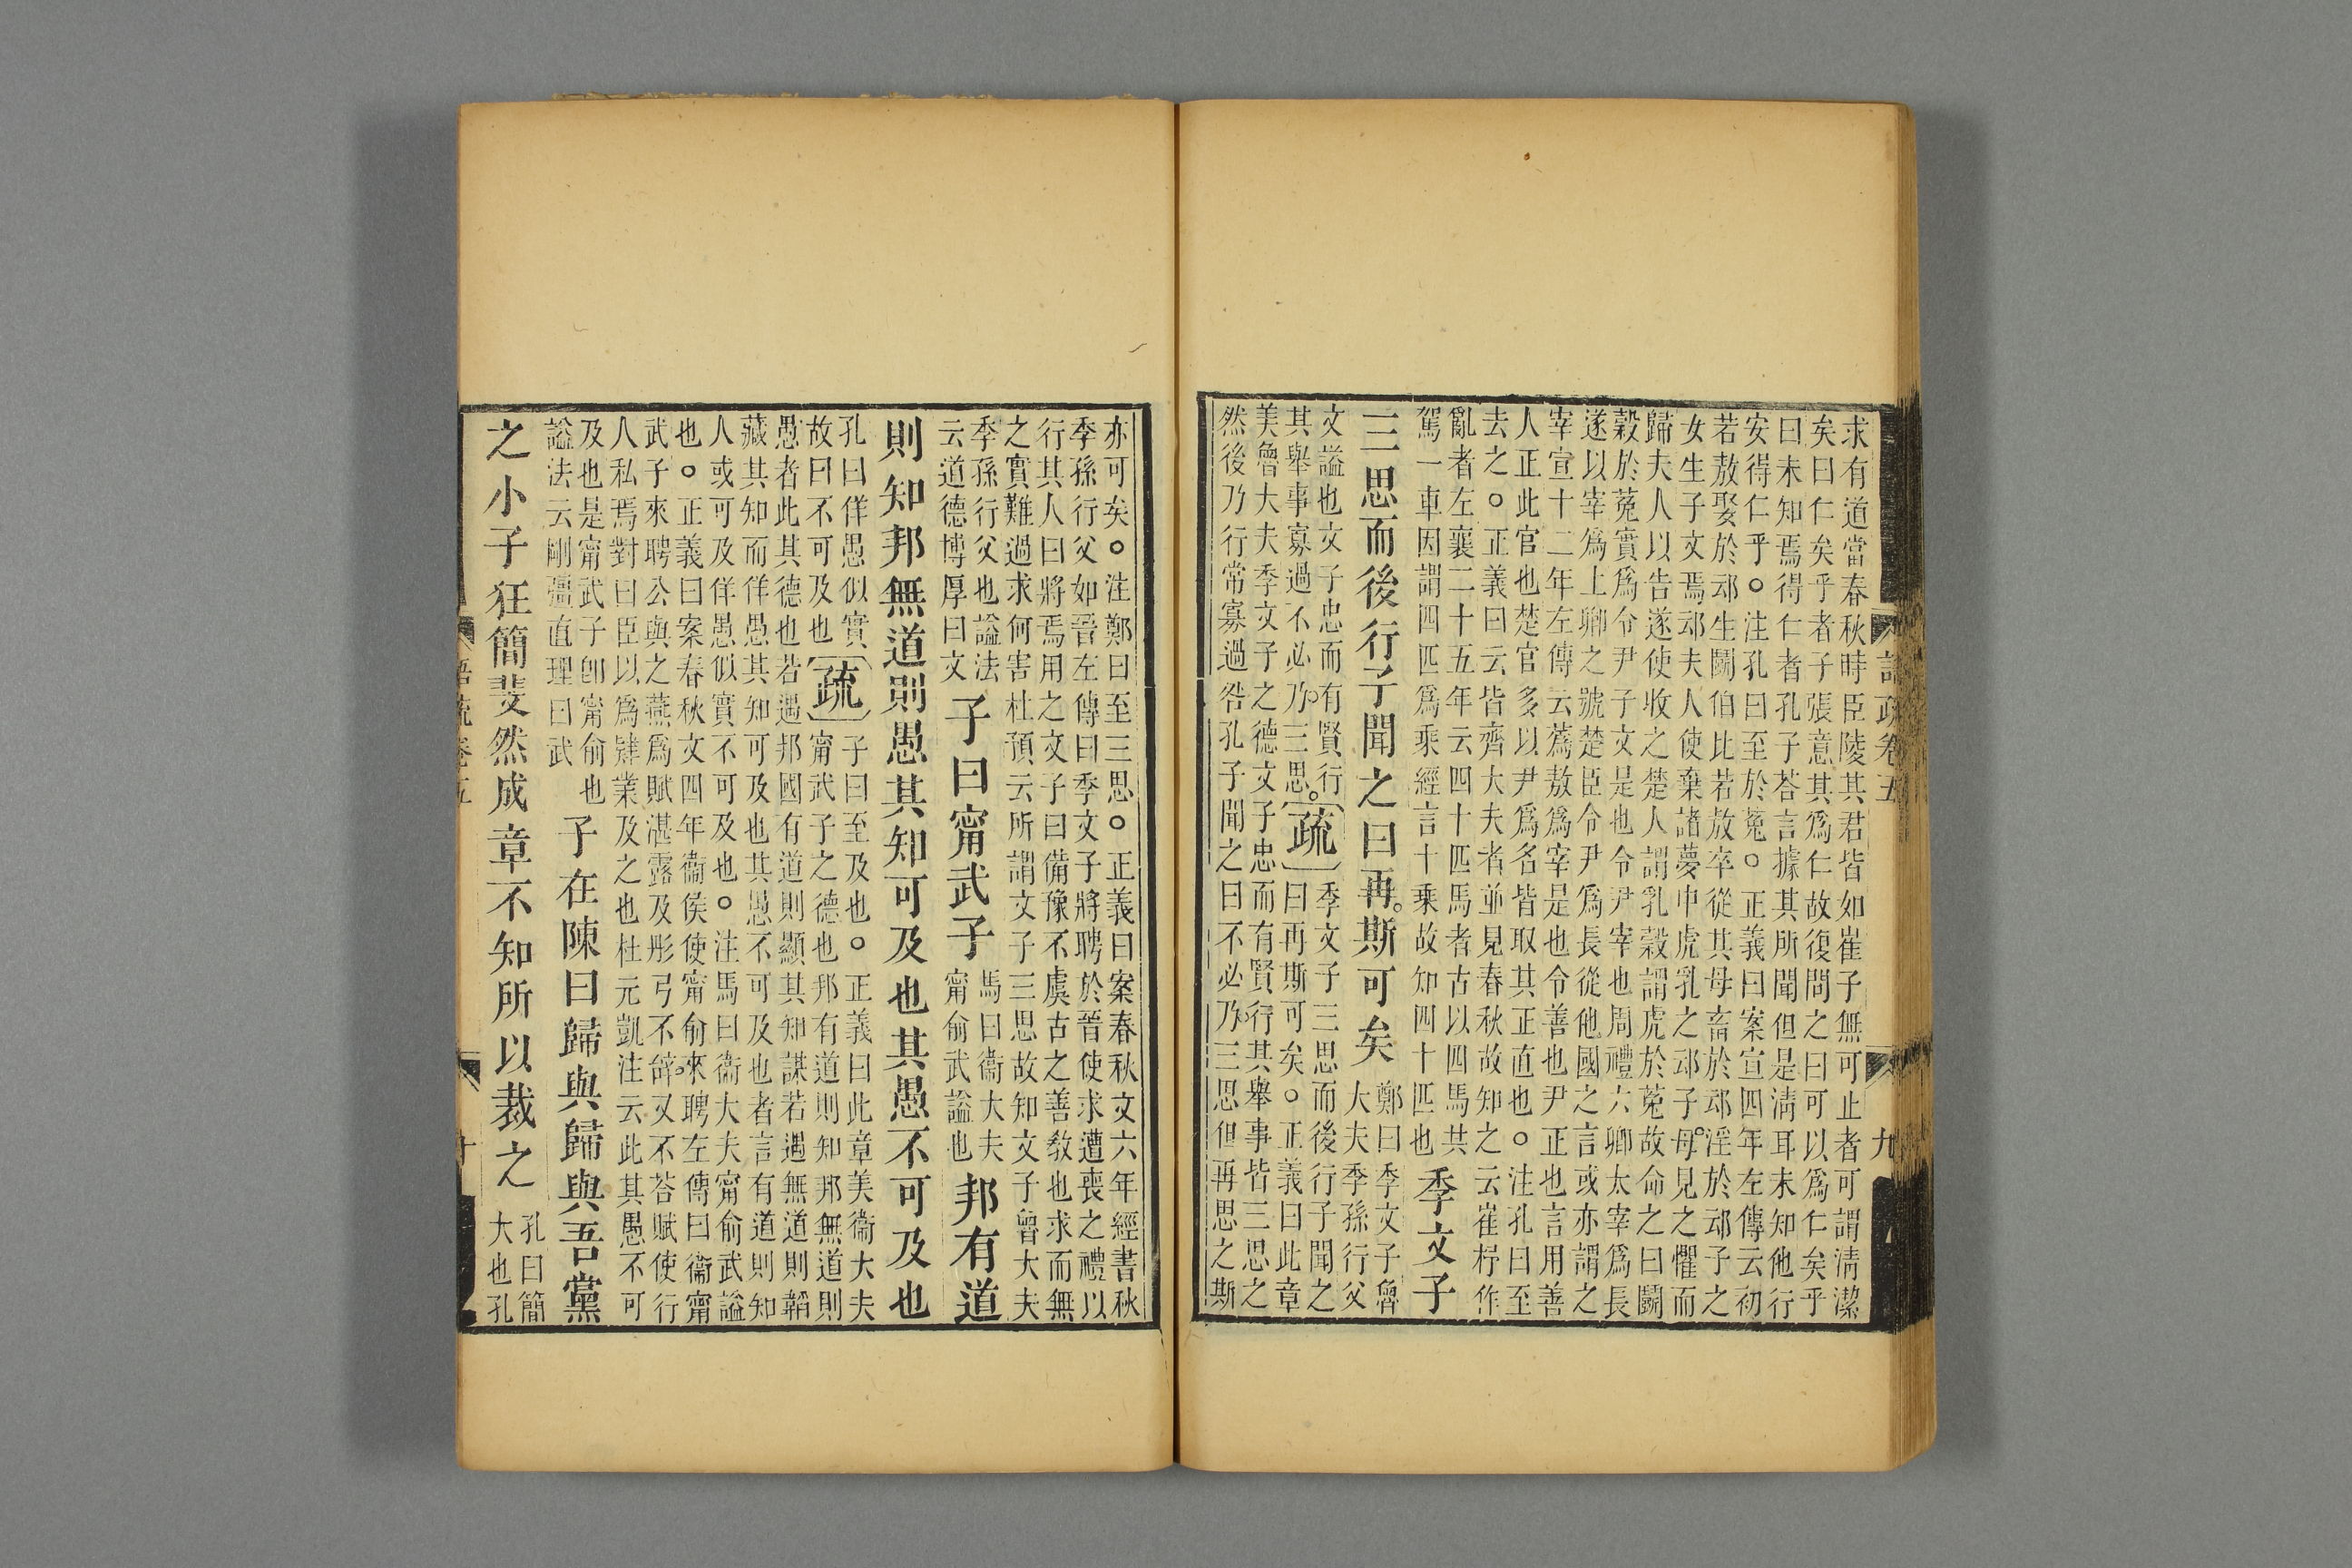 語疏卷五
九
求有道當春秋時臣陵其君皆如崔子無可止者可謂淸潔
矣曰仁矣乎者子張意其爲仁故復問之曰可以爲仁矣乎
曰未知焉得仁者孔子荅言據其所聞但是淸耳未知他行
安得仁乎○注孔曰至於菟○正義曰案宣四年左傳云初
若敖娶於䢵生鬭伯比若敖卒從其母畜於䢵淫於䢵子之
女生子文焉䢵夫人使棄諸夢中虎乳之䢵子母見之懼而
歸夫人以告遂使收之楚人謂乳穀謂虎於菟故命之曰鬭
穀於菟實爲令尹子文是也令尹宰也周禮六卿太宰爲長
遂以宰爲上卿之號楚臣令尹爲長從他國之言或亦謂之
宰宣十二年左傳云蒍敖爲宰是也令善也尹正也言用善
人正此官也楚官多以尹爲名皆取其正直也○注孔曰至
去之○正義曰云皆齊大夫者並見春秋故知之云崔杼作
亂者左襄二十五年云四十匹馬者古以四馬共
駕一車因謂四匹爲乘經言十乘故知四十匹也
季文子
三思而後行子聞之曰再斯可矣
鄭曰季文子魯
大夫季孫行父
文謚也文子忠而有賢行
其舉事寡過不必乃三思
疏
季文子三思而後行子聞之
曰再斯可矣○正義曰此章
美魯大夫季文子之德文子忠而有賢行其舉事皆三思之
然後乃行常寡過咎孔子聞之曰不必乃三思但再思之斯
亦可矣○注鄭曰至三思○正義曰案春秋文六年經書秋
季孫行父如晉左傳曰季文子將聘於晉使求遭喪之禮以
行其人曰將焉用之文子曰備豫不虞古之善敎也求而無
之實難過求何害杜預云所謂文子三思故知文子魯大夫
季孫行父也謚法
云道德博厚曰文
子曰甯武子
馬曰衞大夫
甯俞武謚也
邦有道
則知邦無道則愚其知可及也其愚不可及也
孔曰佯愚似實
故曰不可及也
疏
子曰至及也○正義曰此章美衞大夫
甯武子之德也邦有道則知邦無道則
愚者此其德也若遇邦國有道則顯其知謀若遇無道則韜
藏其知而佯愚其知可及也其愚不可及也者言有道則知
人或可及佯愚似實不可及也○注馬曰衞大夫甯俞武謚
也○正義曰案春秋文四年衞侯使甯俞來聘左傳曰衞甯
武子來聘公與之燕爲賦湛露及彤弓不辭又不荅賦使行
人私焉對曰臣以爲肄業及之也杜元凱注云此其愚不可
及也是甯武子卽甯俞也
謚法云剛彊直理曰武
子在陳曰歸與歸與吾黨
之小子狂簡斐然成章不知所以裁之
孔曰簡
大也孔
語疏卷五
十